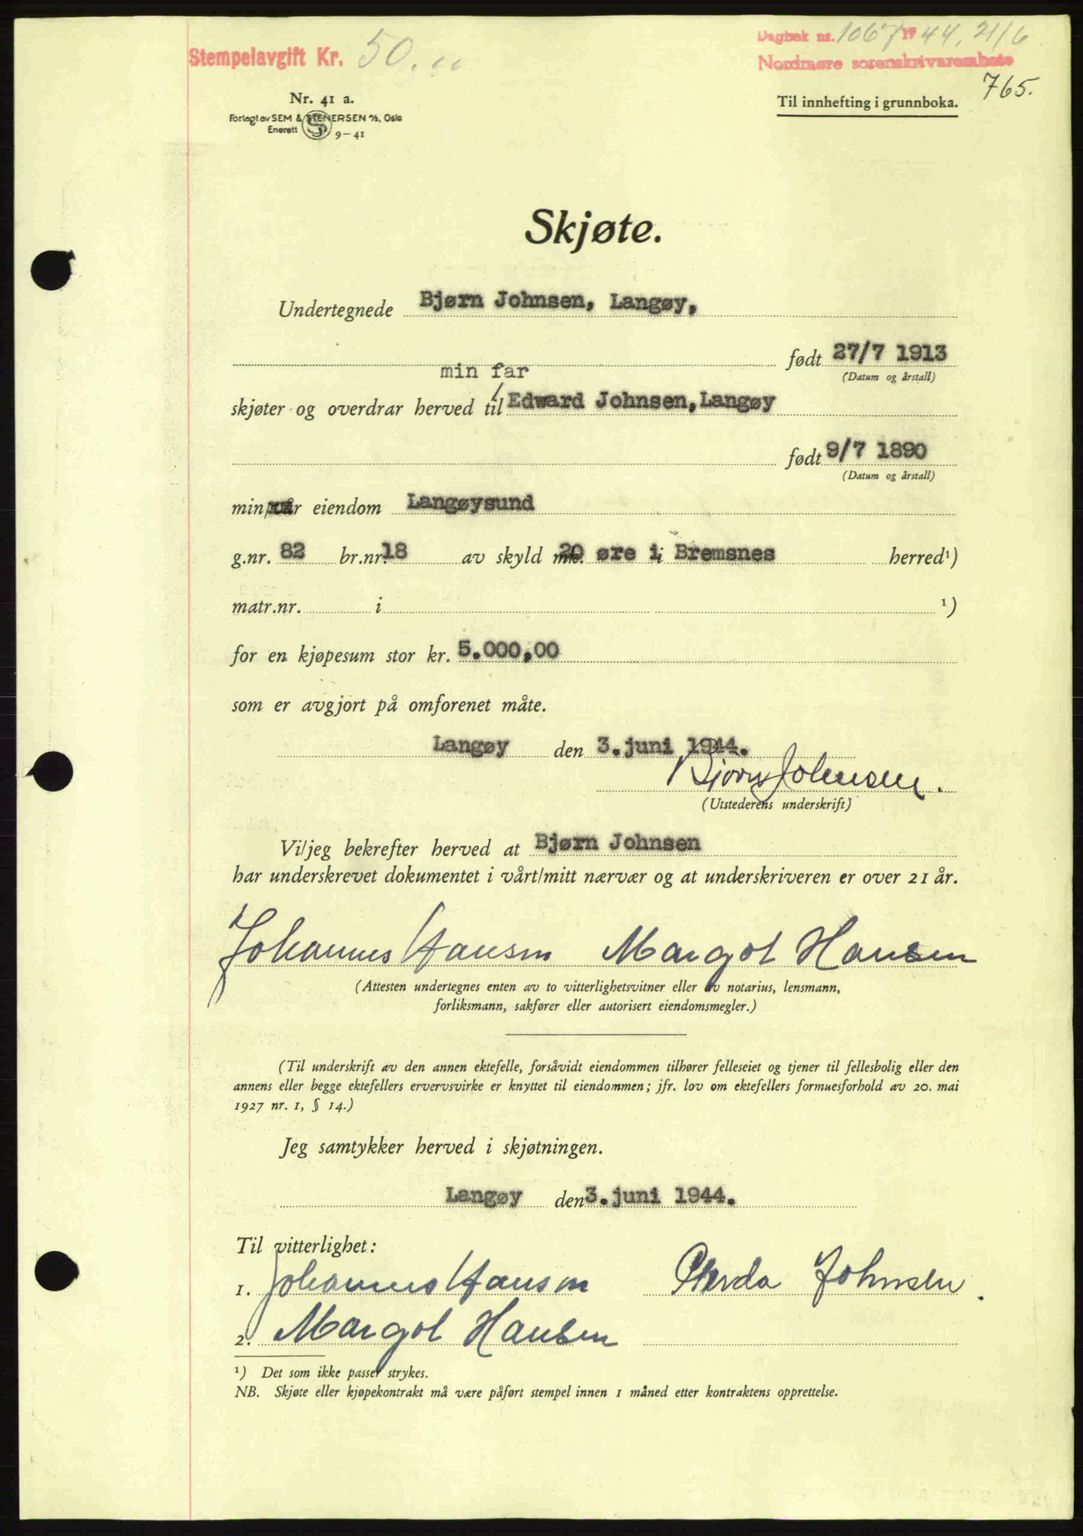 Stempelavgift Kr. 50.
Dagbok nr. 1067 19 44, 21/6
Nordmøre sorenskriverembete
765.
Nr. 41 a.
Til innhefting i grunnboka.
Forlagt av SEM & STENERSEN A/S, Oslo
Enerett 9-41
Skjøte.
Undertegnede Bjørn Johnsen, Langøy,
født 27/7 1913
(Datum og årstall)
min far
skjøter og overdrar herved til Edward Johnsen, Langøy
født 9/7 1890
(Datum og årstall)
min/vår eiendom Langøysund
g.nr. 82 br.nr. 18 av skyld mk. 20 øre i Bremsnes herred¹)
matr.nr. i ¹)
for en kjøpesum stor kr. 5.000,00
som er avgjort på omforenet måte.
Langøy den 3. juni 1944.
Bjørn Johnsen.
(Utstederens underskrift)
Vi/jeg bekrefter herved at Bjørn Johnsen
har underskrevet dokumentet i vårt/mitt nærvær og at underskriveren er over 21 år.
Johannes Hansen Margot Hansen
(Attesten undertegnes enten av to vitterlighetsvitner eller av notarius, lensmann,
forliksmann, sakfører eller autorisert eiendomsmegler.)
(Til underskrift av den annen ektefelle, forsåvidt eiendommen tilhører felleseiet og tjener til fellesbolig eller den
annens eller begge ektefellers ervervsvirke er knyttet til eiendommen; jfr. lov om ektefellers formuesforhold av 20. mai
1927 nr. 1, § 14.)
Jeg samtykker herved i skjøtningen.
Langøy den 3. juni 1944.
Til vitterlighet:
1. Johannes Hansen Johnsen.
2. Margot Hansen
¹) Det som ikke passer strykes.
NB. Skjøte eller kjøpekontrakt må være påført stempel innen 1 måned etter kontraktens opprettelse.